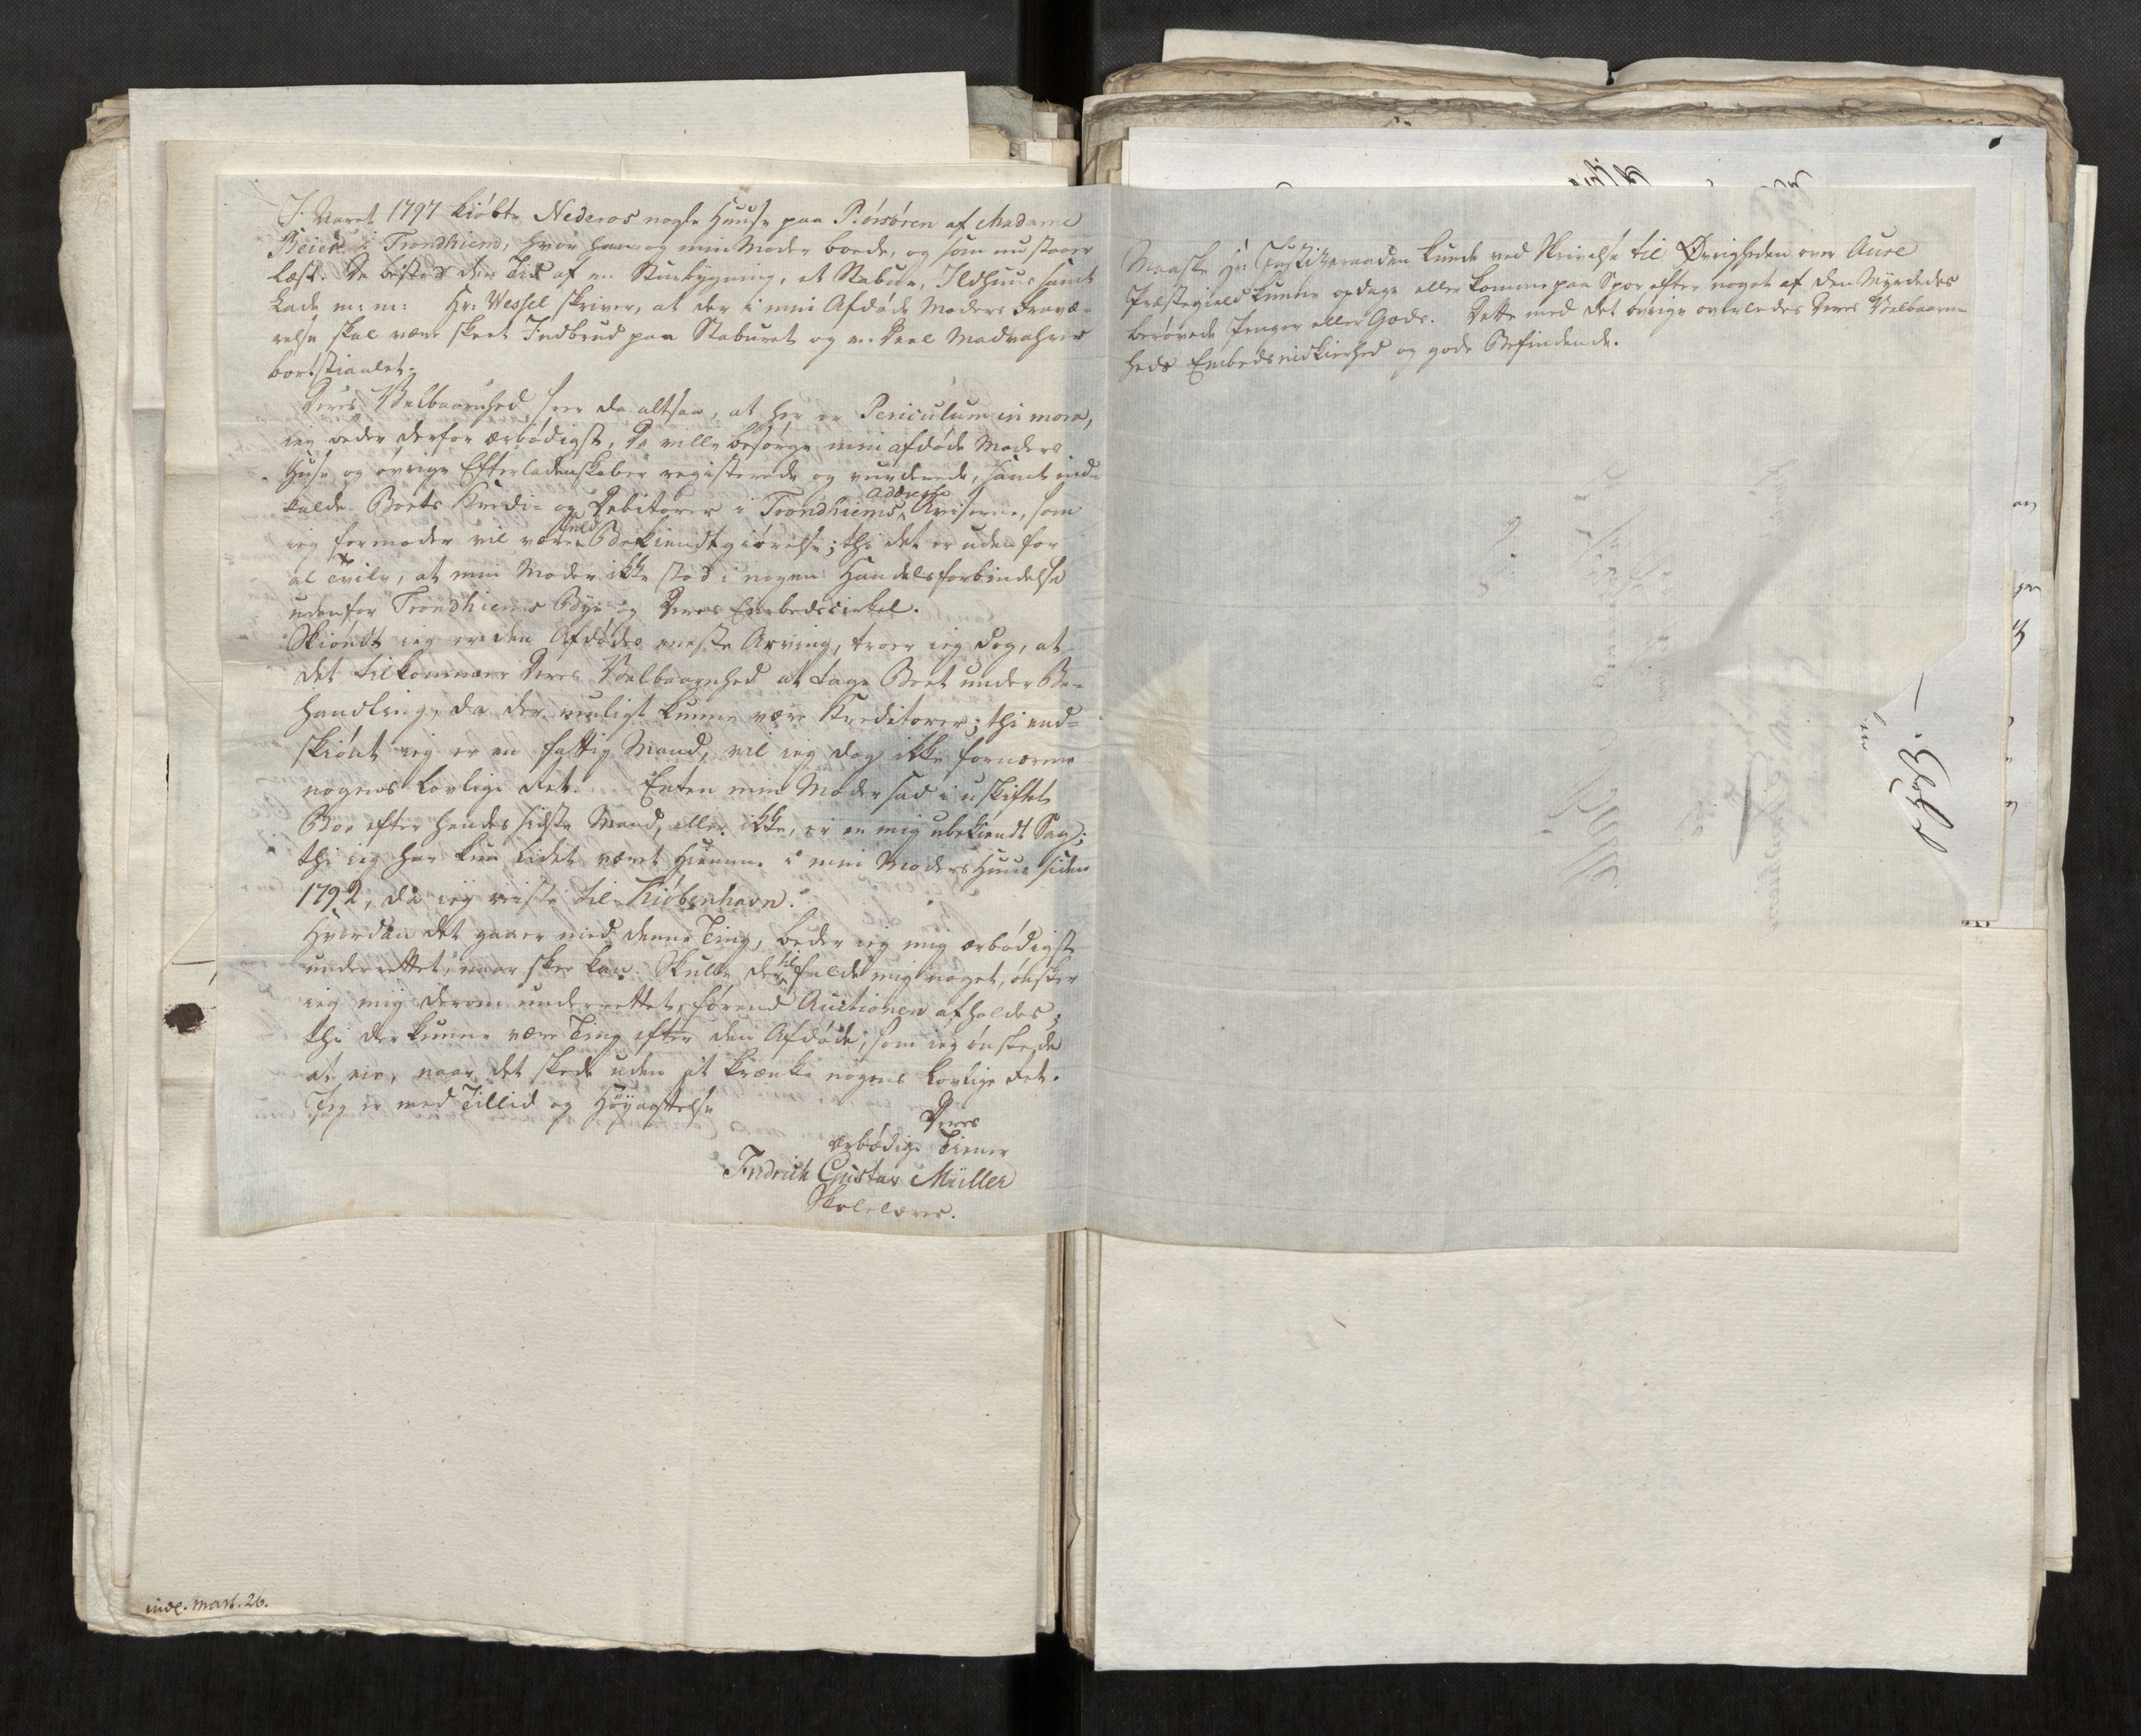 I Aaret 1797 kiøbte Nederos nogle Huuse paa Børsøren af Madame
Beier i Trondhiem, hvor han og min Moder boede, og som nu staaer
læst. De bestod den Tid af en Stuebygning, et Stabur, Ildhuus samt
Lade m: m: Hr: Wessel skriver, at der i min Afdøde Moders Fravæ-
relse skal være skeet Indbrud paa Staburet og en Deel Madvahrer
bortstiaalet.
Deres Velbaarnhed seer da altsaa, at her er Periculum in mora,
ieg beder derfor ærbødigst, De ville besørge min afdøde Moders
Huse og øvrige Efterladenskaber registerede og vurderede, samt ind-
kalde Boets Kredi- og Debitorer i Trondhiems Adresse Aviserne, som
ieg formoder vil være fuld Bekiendtgiørelse; thi det er uden for
al Tvivl, at min Moder ikke stod i nogen Handelsforbindelse
udenfor Trondhiems Bye og Deres Embedscirkel.
Skiøndt ieg er den Afdødes eneste Arving, troer ieg dog, at
det tilkommer Deres Velbaarnhed at tage Boet under Be-
handling, da der muligt kunne være Kreditorer; thi end-
skiønt ieg er en fattig Mand, vil ieg dog ikke fornærme
nogens Lovlige Ret. Enten min Moder sad i uskiftet
Boe efter hendes sidste Mand, eller ikke, er en mig ubekiendt Sag;
thi ieg har kun lidet været hiemme i min Moders Huus siden
1792, da ieg reiste til Kiøbenhavn.
Hvordan det gaaer med denne Ting, beder ieg mig ærbødigst
underrettet, naar skee kan. Skulle der tilfalde mig noget, ønsker
ieg mig derom underrettet, førend Auctionen afholdes;
thi der kunne være Ting efter den Afdøde, som ieg ønskede
at eie, naar det skede uden at krænke nogens Lovlige Ret.
Jeg er med Tillid og Høyagtelse
Deres
ærbødige Tiener
Fridrich Gustav Müller
Skolelærer.
Maaske Hr: Justitzraaden kunde ved Skrivelse til Øvrigheden over Aure
Præstegield kunne opdage eller komme paa Spor efter noget af den Myrdedes
berøvede Penger eller Gods. Dette med det øvrige overlades Deres Velbaarn-
heds Embedsnidkierhed og gode Befindende.
indl. Mart. 26.